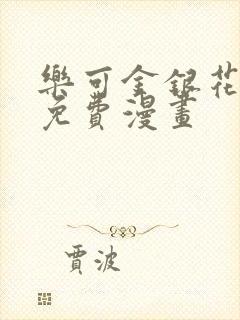 樂可金銀花
免費漫畫
賈波